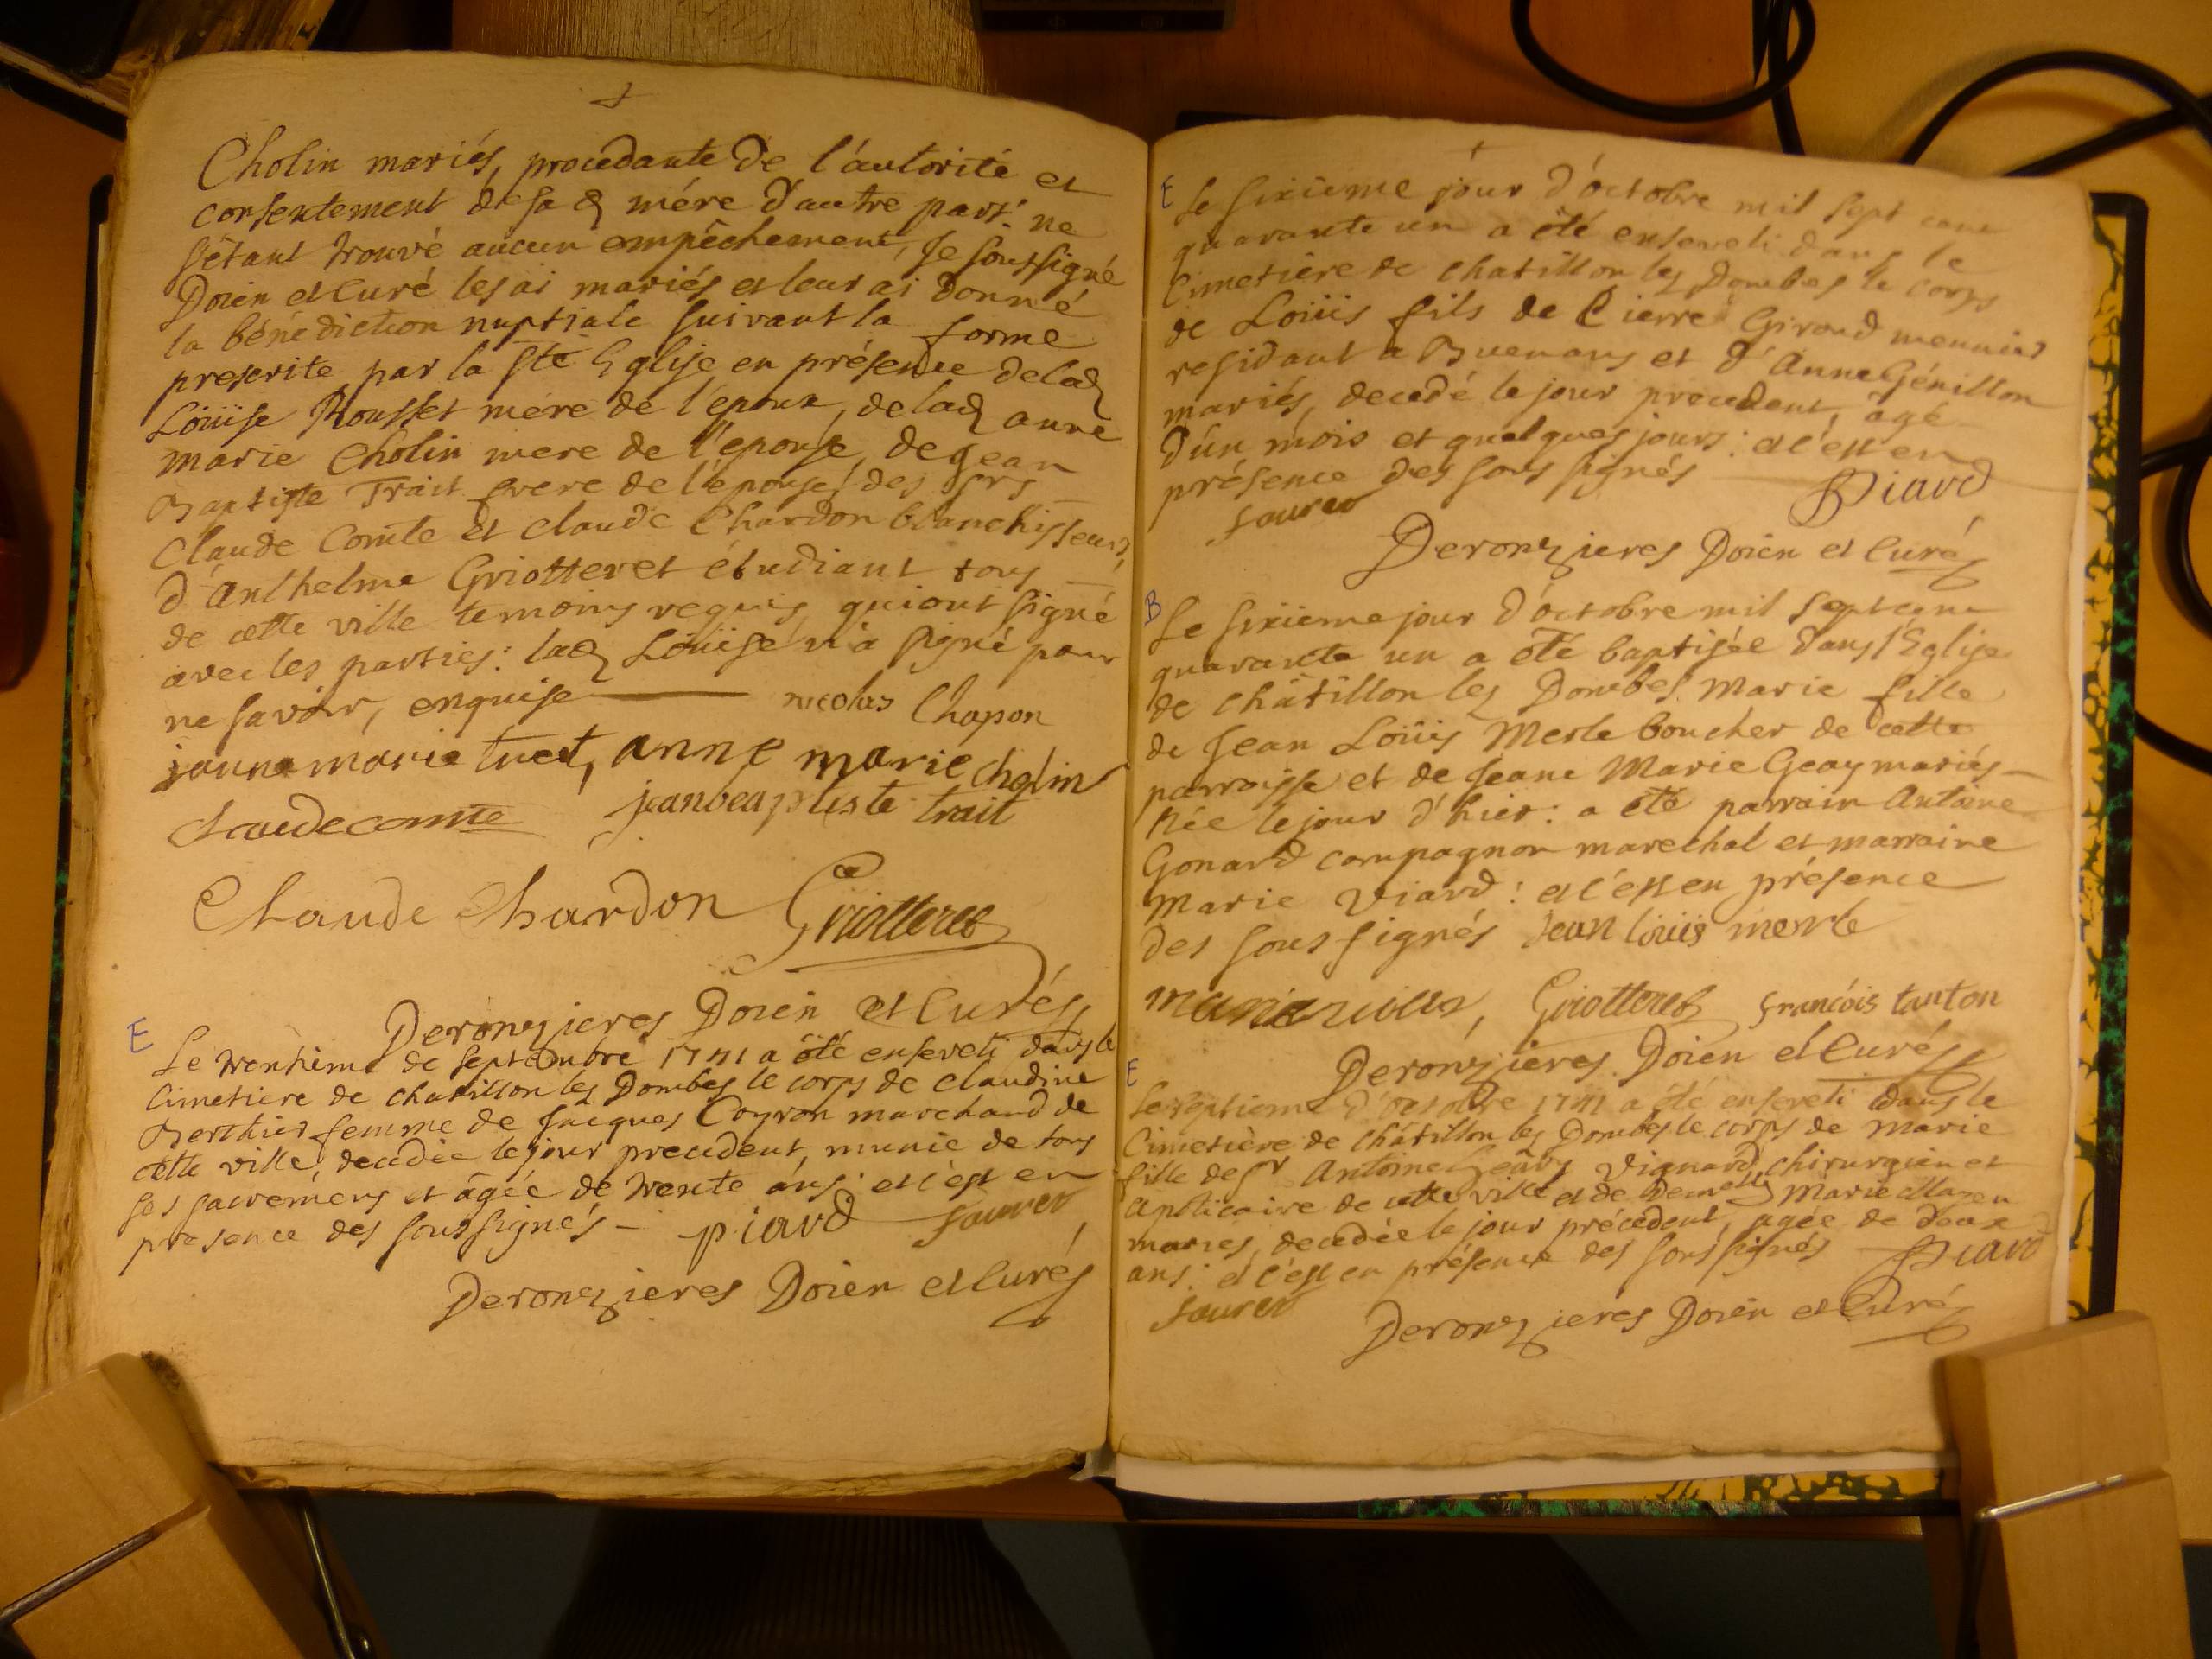 Cholin mariés, procedante de l'áutorité et
consentement de sa d mére d'autre part: ne
s'étant trouvé aucun empêchement, Je soussigné
Doien et Curé les ai mariés et leur ai donné
la bénédiction nuptiale suivant la forme
prescrite par la Ste Eglise en présence de lad
Loüise Rousset mére de l'époux, de lad anne
marie Cholin mere de l'epouse, de Jean
Baptiste Trait frere de l'épouse, des srs
Claude Comte et Claude Chardon blanchisseurs,
d'Anthelme Griotteret étudiant tous
de cette ville temoins requis, qui ont signé
avec les parties: lad Loüise n'a signé pour
ne savoir, enquise nicolas Chapon
janne marie tuet, anne marie cholin
claude comte jeanbeaptiste trait
Claude Chardon Griotteret
Deronzieres Doien et Curé
E Le trentieme de septembre 1741 a été enseveli dans le
Cimetiere de chatillon les Dombes le corps de Claudine
Berthier femme de Jacques Coyron marchand de
cette ville, decedée le jour precedent, munie de tous
ses sacremens et âgée de trente ans: et c'est en
presence des soussignés - piard sauret
Deronzieres Doien et Curé
E Le sixieme jour d'octobre mil sept cent
quarante un a été enseveli dans le
Cimetière de chatillon les Dombes le corps
de Loüis fils de Pierre Giroud meunier
residant a Buenans et d'Anne Génillon
mariés, decedé le jour precedent, âgé
d'un mois et quelques jours: et c'est en
présence des sous signés Piard
sauret
Deronzieres Doien et Curé
B Le sixieme jour d'octobre mil sept cent
quarante un a été baptisée dans l'Eglise
de châtillon les Dombes Marie fille
de Jean Loüis Merle boucher de cette
parroisse et de Jeane Marie Geay mariés
née le jour d'hier: a été parrain Antoine
Gonard compagnon marechal et marraine
Marie Viard: et c'est en présence
des sous signés Jean loüis merle
marie Griotteret francois tanton
Deronzieres Doien et Curé
E Le septieme d'octobre 1741 a été enseveli dans le
Cimetière de châtillon les Dombes le corps de Marie
fille de sr Antoine Vignard, chirurgien et
Apoticaire de cette ville et de Demelle Marie
mariés, decedée le jour précedent, agée de deux
ans: et c'est en présence des sous signés Piard
sauret
Deronzieres Doien et Curé